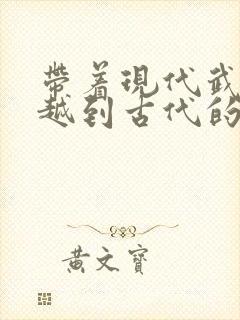 帶着現代武
越到古代的
黃文寶